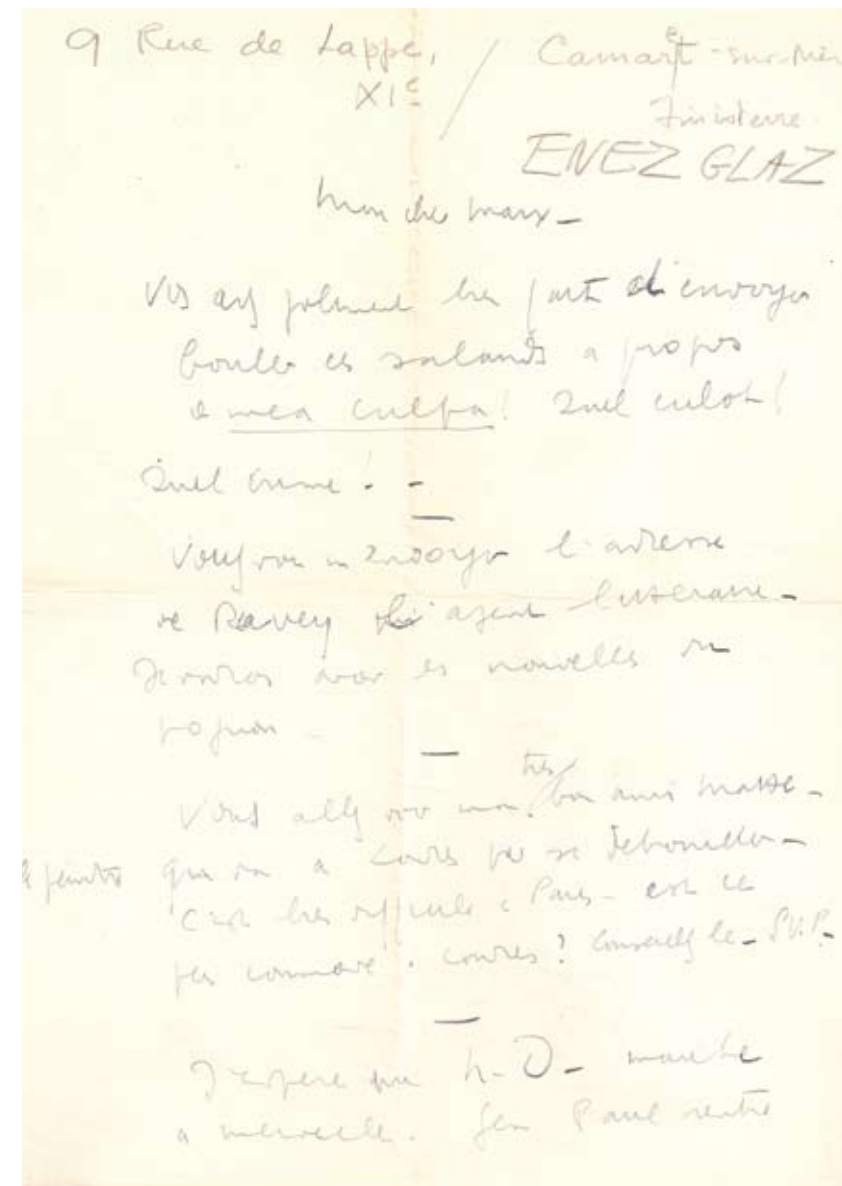 9 Rue de Lappe, / Camaret-sur-Mer
XIe Finistere
ENEZ GLAZ
Mon cher Marx -
Vs avez joliment bien fait d'envoyer
bouler ces salauds a propos
de mea culpa! Quel culot!
Quel crime! -
l'adresse
de Ravey agent litteraire -
Je voudrais avoir des nouvelles du
pognon -
Vous allez voir mon très bon ami
le peintre qui va a Londres pr se debrouiller -
C'est bien difficile a Paris - est ce
Londres? Conseillez le - S.V.P. -
J'espere que h-D- marche
a merveille. Gen Paul rentre